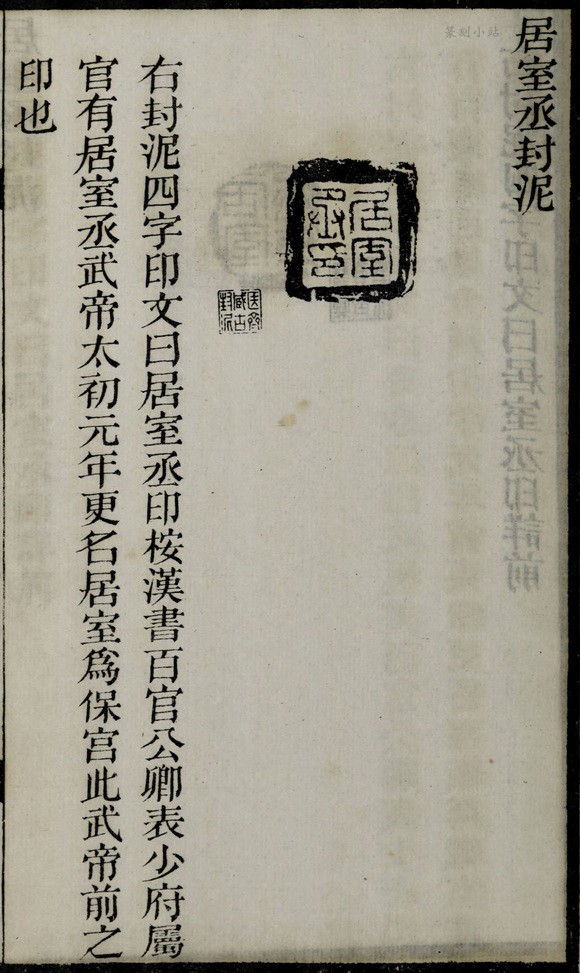 居室丞封泥
居室丞印
匋齋藏古封泥
右封泥四字印文曰居室丞印桉漢書百官公卿表少府屬
官有居室丞武帝太初元年更名居室爲保宮此武帝前之
印也
篆刻小站